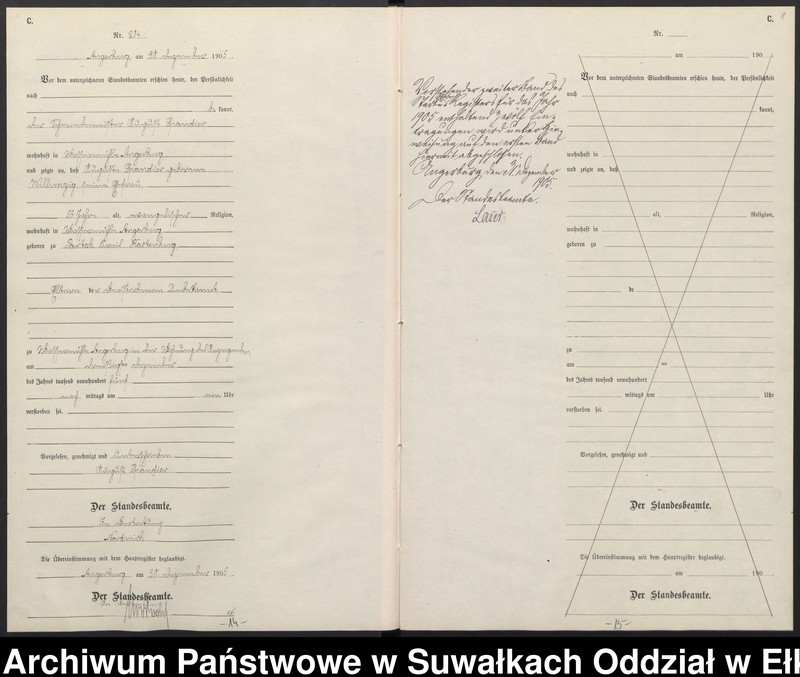 C.
Nr. 212
Angerburg am 30 Dezember 1905.
Vor dem unterzeichneten Standesbeamten erschien heute, der Persönlichkeit
nach
be kannt,
der August Brandier
wohnhaft in Wassermühle Angerburg
und zeigte an, daß Auguste Brandier geborene
seine Ehefrau,
63 Jahre alt, evangelischer Religion,
wohnhaft in Wassermühle Angerburg
geboren zu Kreis Rastenburg
Eltern der
zu Wassermühle Angerburg in der Wohnung des Anzeigenden
am dreißigsten Dezember
des Jahres tausend neunhundert fünf
nach mittags um Uhr
verstorben sei.
Vorgelesen, genehmigt und unterschrieben
August Brandier
Der Standesbeamte.
In Vertretung
Die Übereinstimmung mit dem Hauptregister beglaubigt.
Angerburg am 30 Dezember 1905.
Der Standesbeamte.
In Vertretung
-14-
Vorstehender zweiter Band des
Sterberegisters für das Jahr
1905 enthaltend zwölf Ein-
tragungen wird unter Hin-
weisung auf den ersten Band
hiermit abgeschlossen.
Angerburg, den 31. Dezember
1905.
Der Standesbeamte.
Laser
C.
Nr.
am 190
Vor dem unterzeichneten Standesbeamten erschien heute, der Persönlichkeit
nach
kannt,
wohnhaft in
und zeigte an, daß
alt, Religion,
wohnhaft in
geboren zu
de
zu
am
des Jahres tausend neunhundert
mittags um Uhr
verstorben sei.
Vorgelesen, genehmigt und
Der Standesbeamte.
Die Übereinstimmung mit dem Hauptregister beglaubigt.
am 190
Der Standesbeamte.
-15-
Archiwum Państwowe w Suwałkach Oddział w Ełk